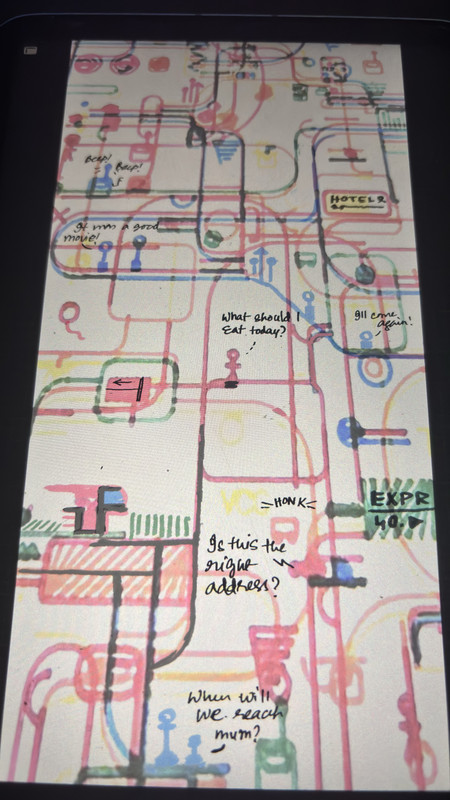 Beep!
Beep!
HOTELS
It was a good
movie!
What should I
eat today?
I'll come
again!
HONK
EXPR
40. ▶
Is this the
right
address?
When will
we reach
mum?